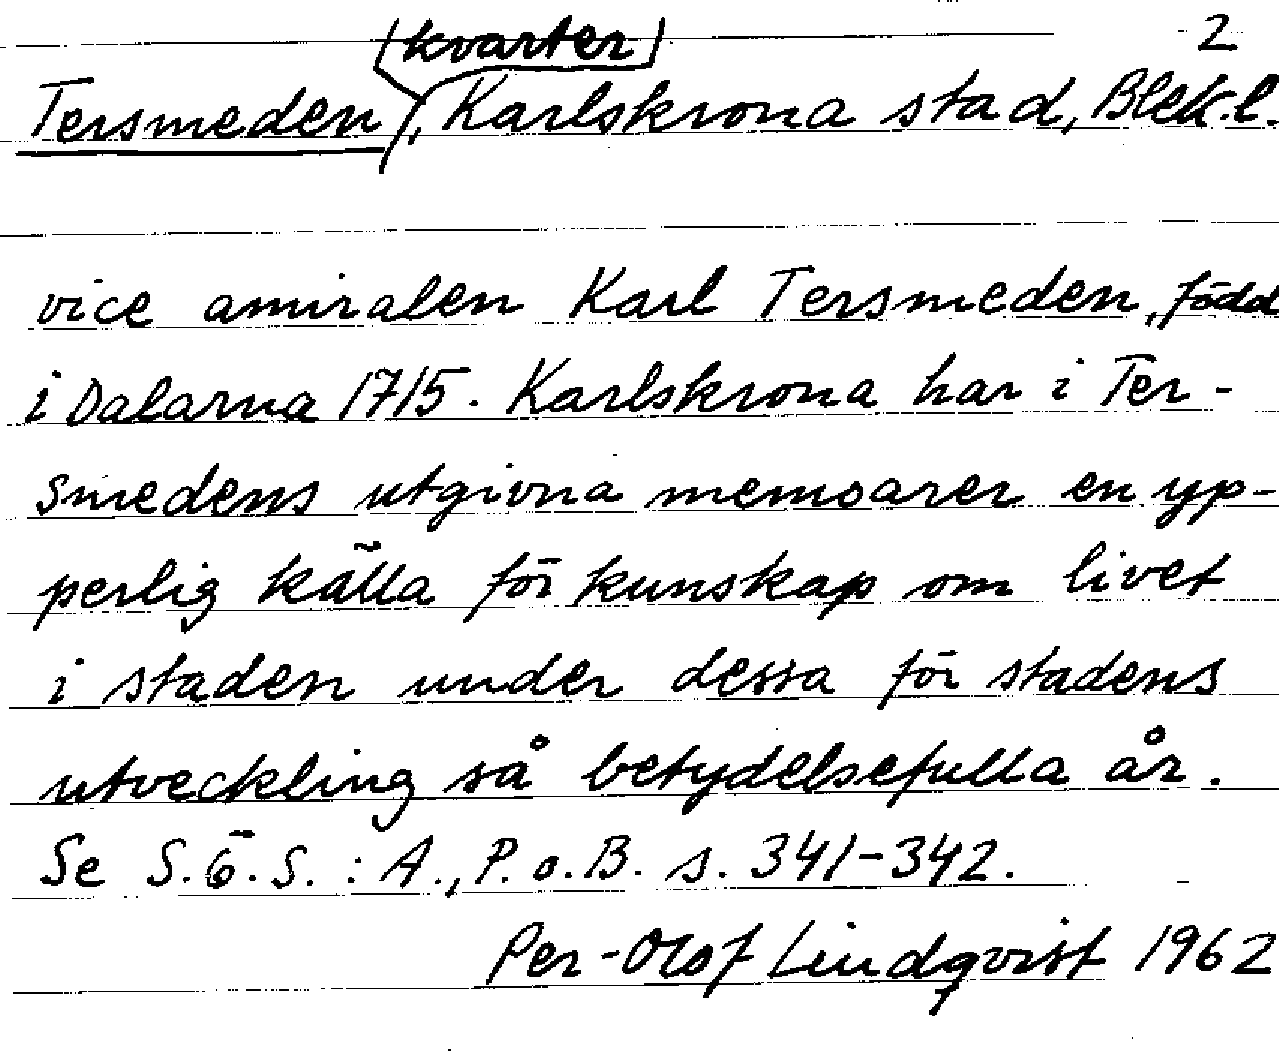 2
(kvarter)
Tersmeden, Karlskrona stad, Blek.l.
vice amiralen Karl Tersmeden, född
i Dalarna 1715. Karlskrona har i Ter-
smedens utgivna memoarer en yp-
perlig källa för kunskap om livet
i staden under dessa för stadens
utveckling så betydelsefulla år.
Se S.Ö.S. : A., P. o. B. s. 341-342.
Per-Olof Lindqvist 1962